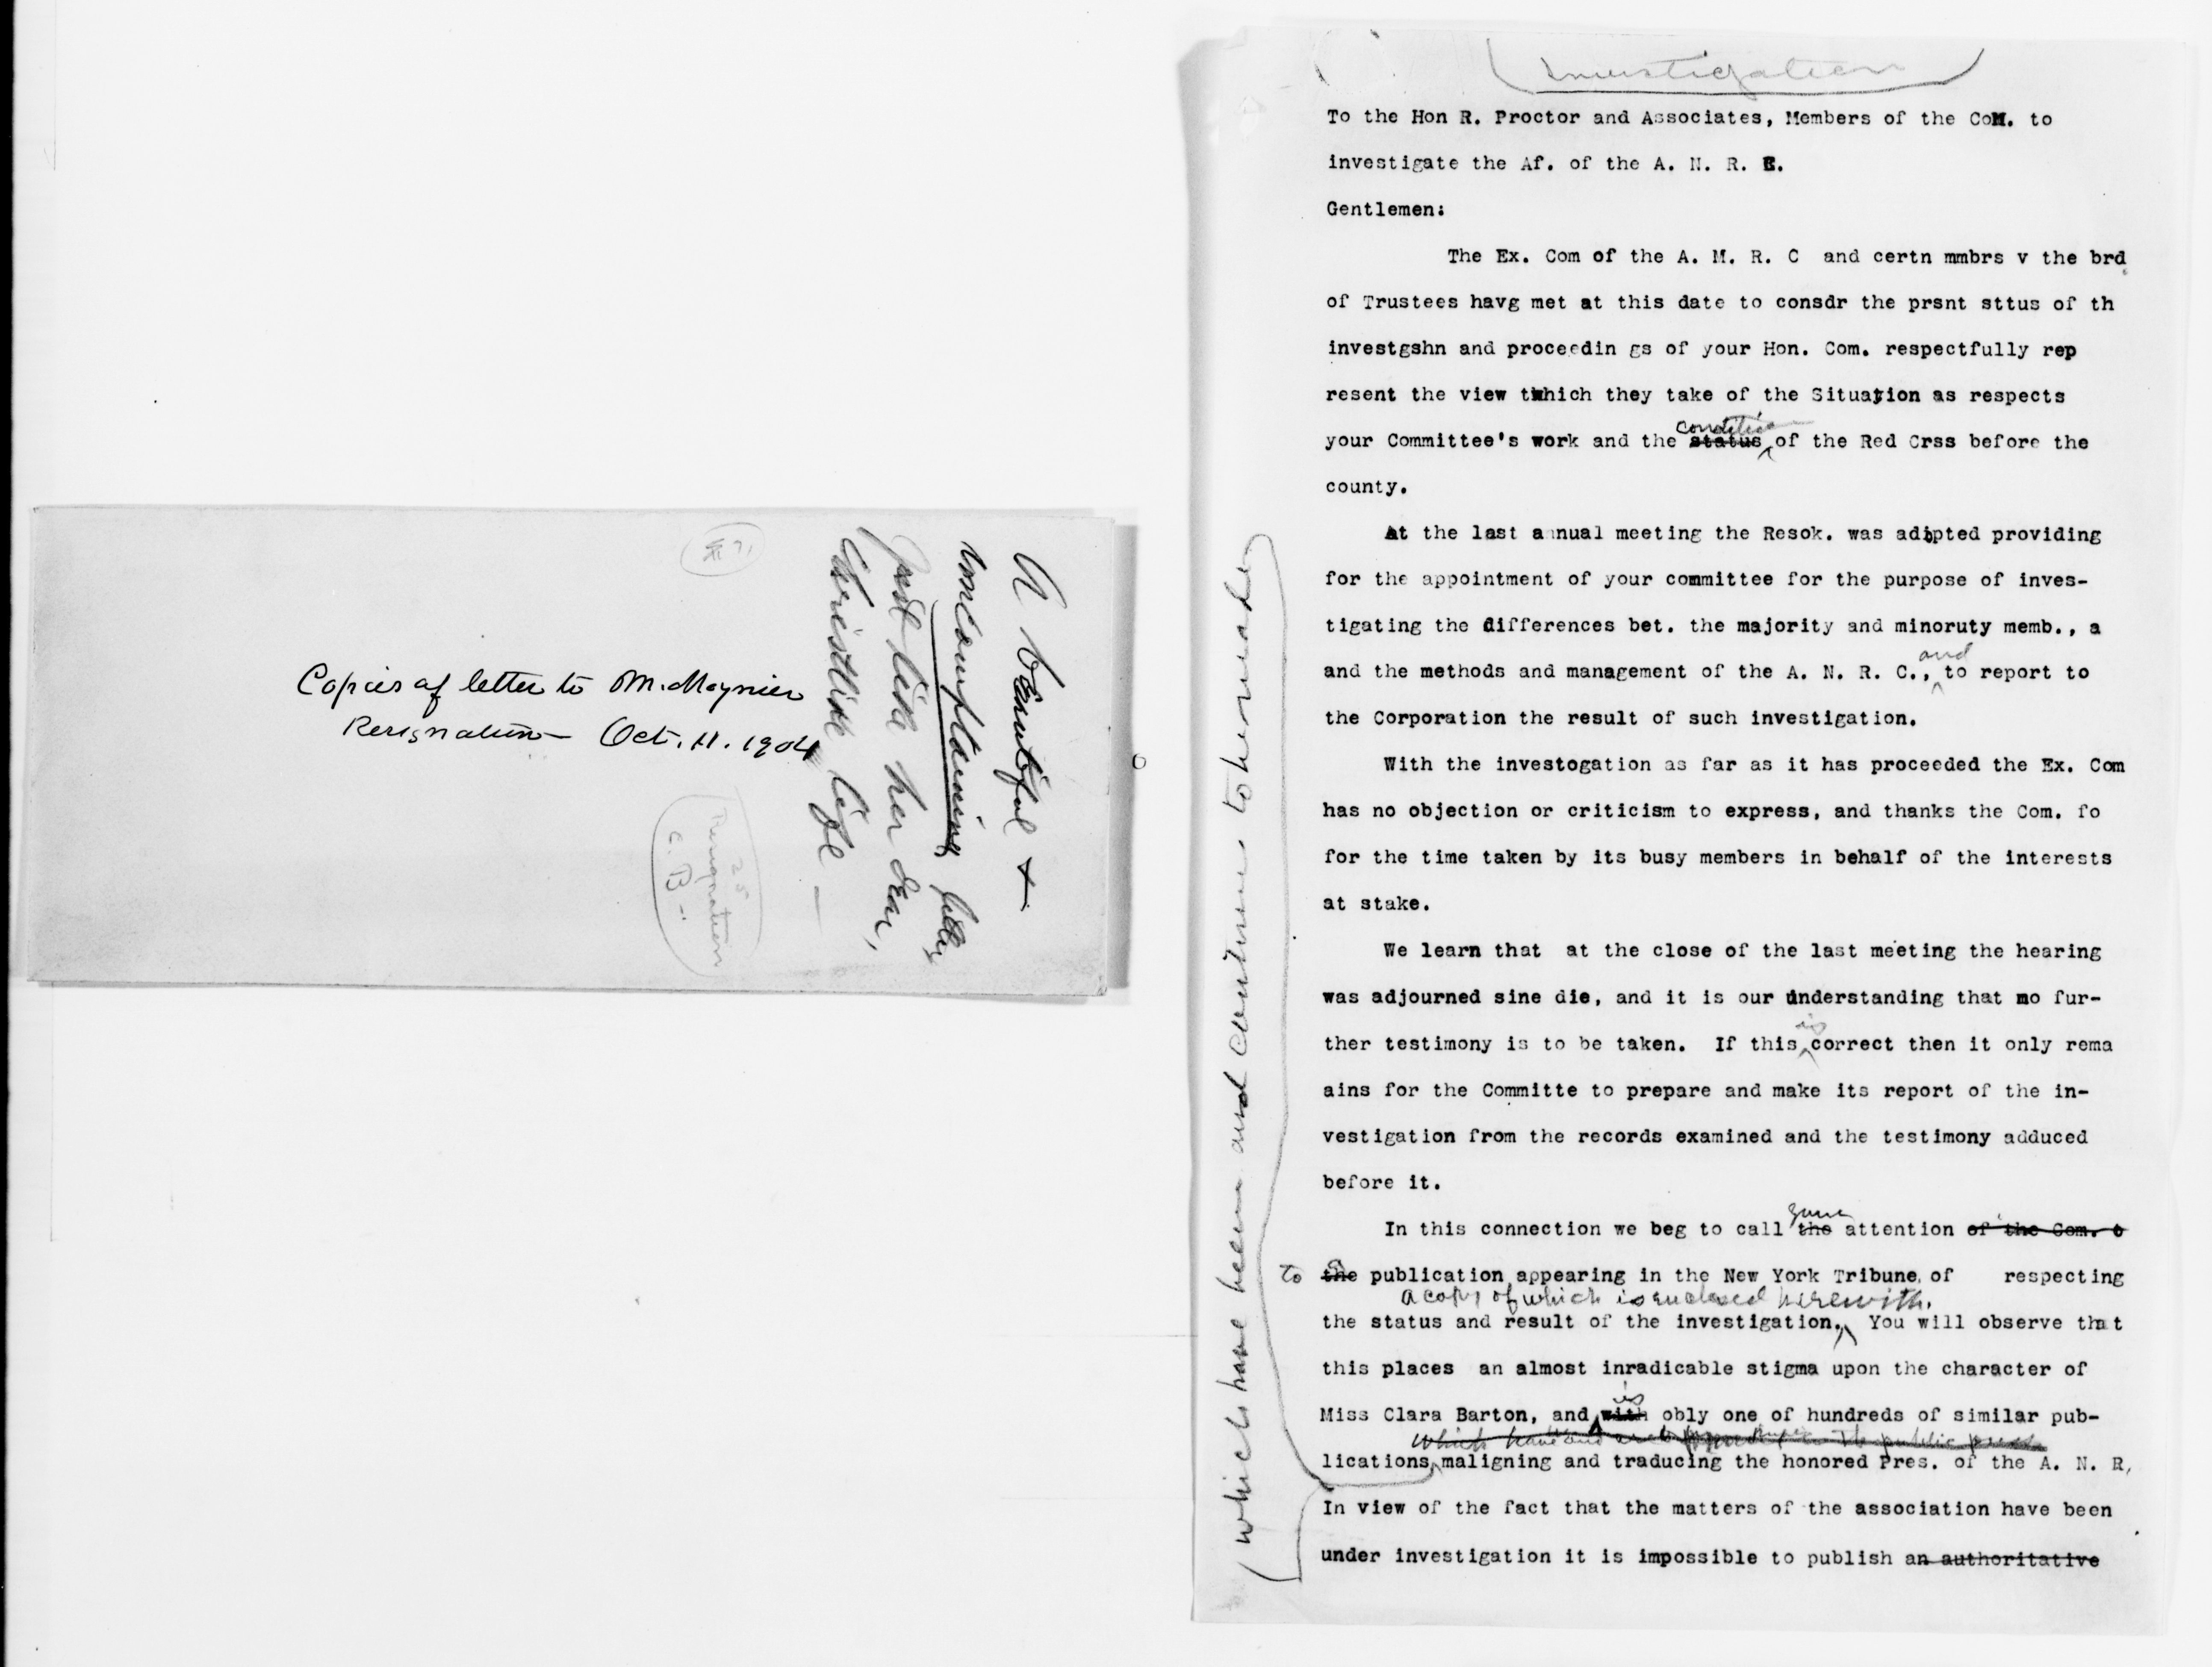 Copies of letter to M. Moynier
Resignation — Oct. 11. 1904
A beautiful +
uncomplaining letter,
Just like her dear,
Christlike life —
25
Resignation
C. B—
Investigation
To the Hon R. Proctor and Associates, Members of the CoM. to
investigate the Af. of the A. N. R. C.
Gentlemen:
The Ex. Com of the A. M. R. C and certn mmbrs v the brd
of Trustees havg met at this date to consdr the prsnt sttus of th
investgshn and proceedin gs of your Hon. Com. respectfully rep
resent the view twhich they take of the Situation as respects
condition
your Committee's work and the status of the Red Crss before the
county.
At the last annual meeting the Resok. was adipted providing
for the appointment of your committee for the purpose of inves-
tigating the differences bet. the majority and minoruty memb., a
and
and the methods and management of the A. N. R. C., to report to
the Corporation the result of such investigation.
With the investogation as far as it has proceeded the Ex. Com
has no objection or criticism to express, and thanks the Com. fo
for the time taken by its busy members in behalf of the interests
at stake.
We learn that at the close of the last meeting the hearing
was adjourned sine die, and it is our understanding that no fur-
is
ther testimony is to be taken. If this correct then it only rema
ains for the Committe to prepare and make its report of the in-
vestigation from the records examined and the testimony adduced
before it.
your
In this connection we beg to call the attention of the Com. o
to the publication appearing in the New York Tribune, of respecting
a copy of which is enclosed herewith.
the status and result of the investigation. You will observe that
this places an almost inradicable stigma upon the character of
is
Miss Clara Barton, and with obly one of hundreds of similar pub-
which have and are in the public press
lications, maligning and traducing the honored Pres. of the A. N. R,
In view of the fact that the matters of the association have been
under investigation it is impossible to publish an authoritative
which have been and continue to be made